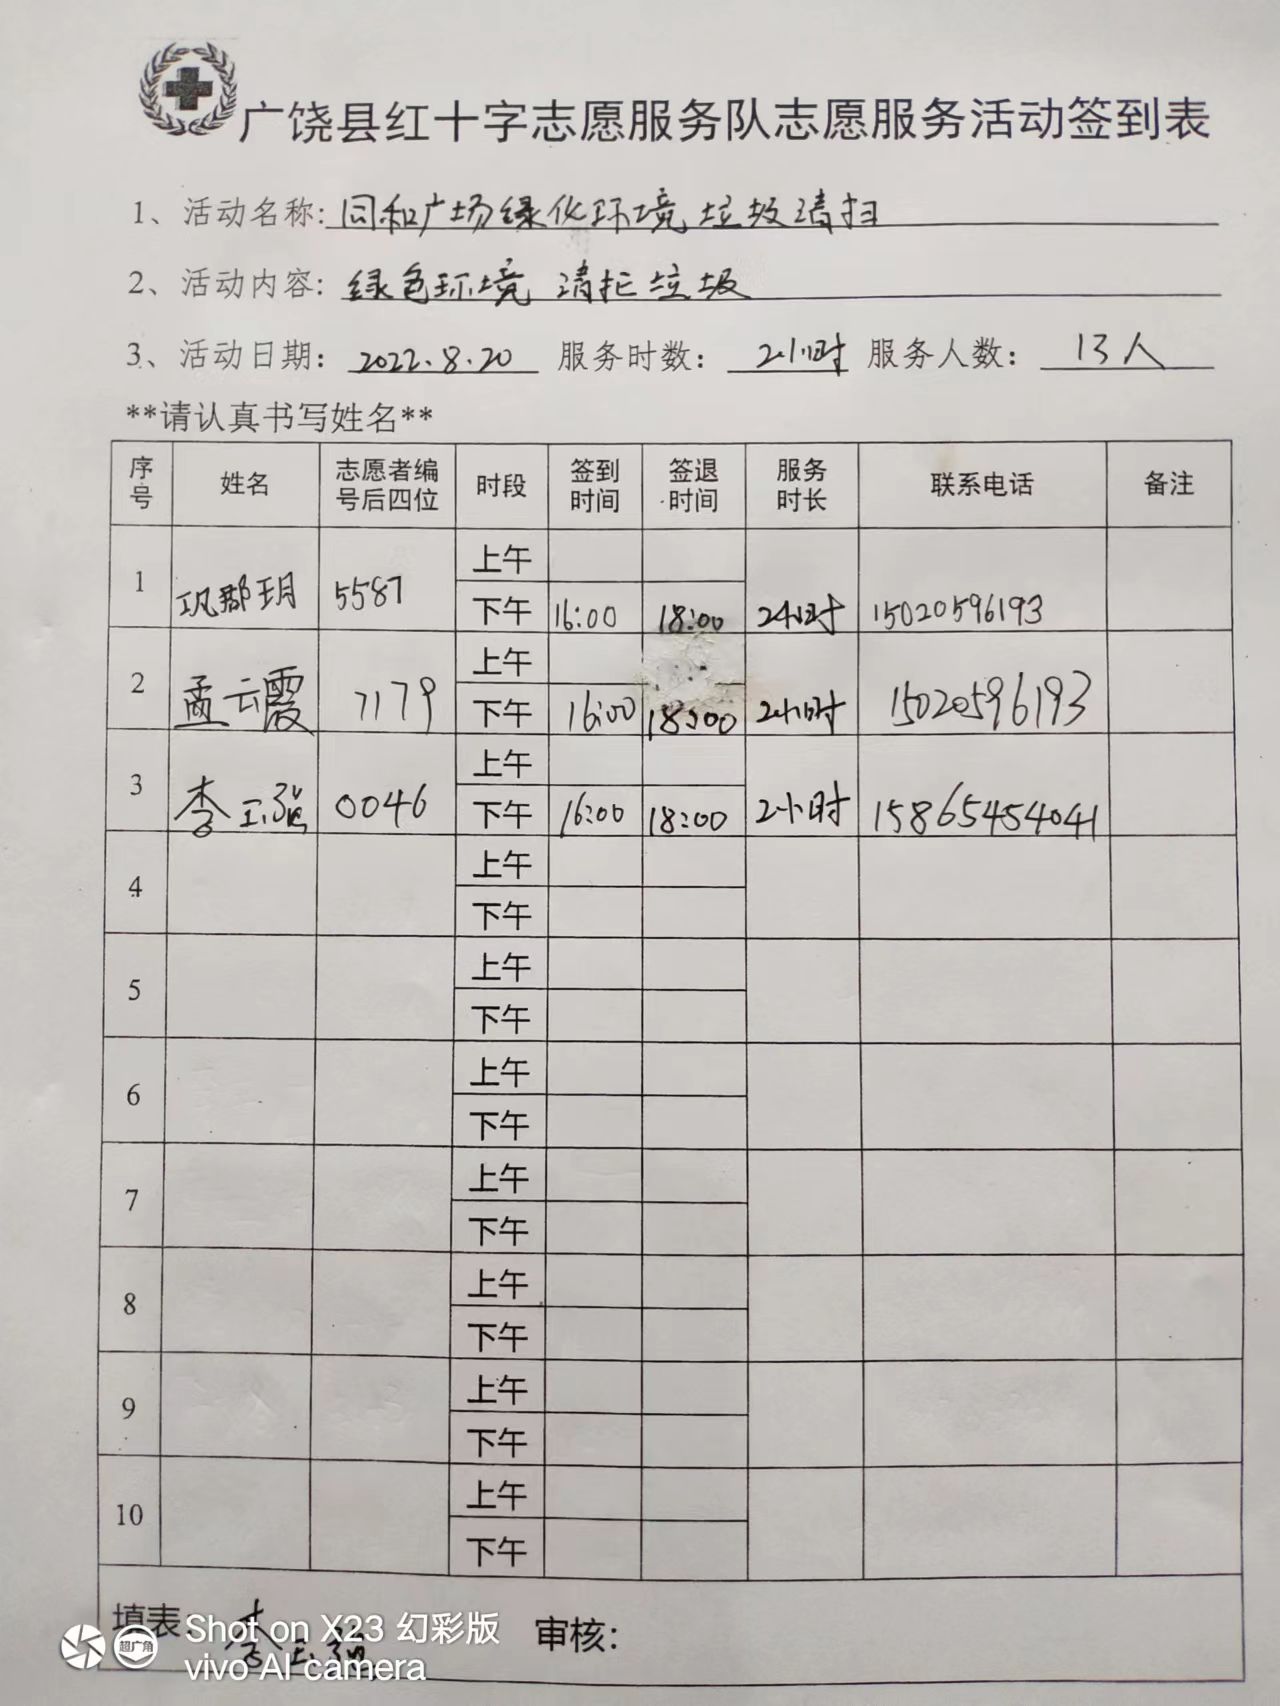 广饶县红十字志愿服务队志愿服务活动签到表
1、活动名称: 同和广场绿化环境垃圾清扫
2、活动内容: 绿色环境 清扫垃圾
3、活动日期: 2022.8.20 服务时数: 2小时 服务人数: 13人
**请认真书写姓名**
序号 姓名 志愿者编号后四位 时段 签到时间 签退时间 服务时长 联系电话 备注
上午
1 巩郡玥 5587
下午 16:00 18:00 2小时 15020596193
上午
2 孟云霞 7179
下午 16:00 18:00 2小时 15020596193
上午
3 李玉强 0046
下午 16:00 18:00 2小时 15865454041
上午
4
下午
上午
5
下午
上午
6
下午
上午
7
下午
上午
8
下午
上午
9
下午
上午
10
下午
填表: 李玉强 审核:
超广角
Shot on X23 幻彩版
vivo AI camera